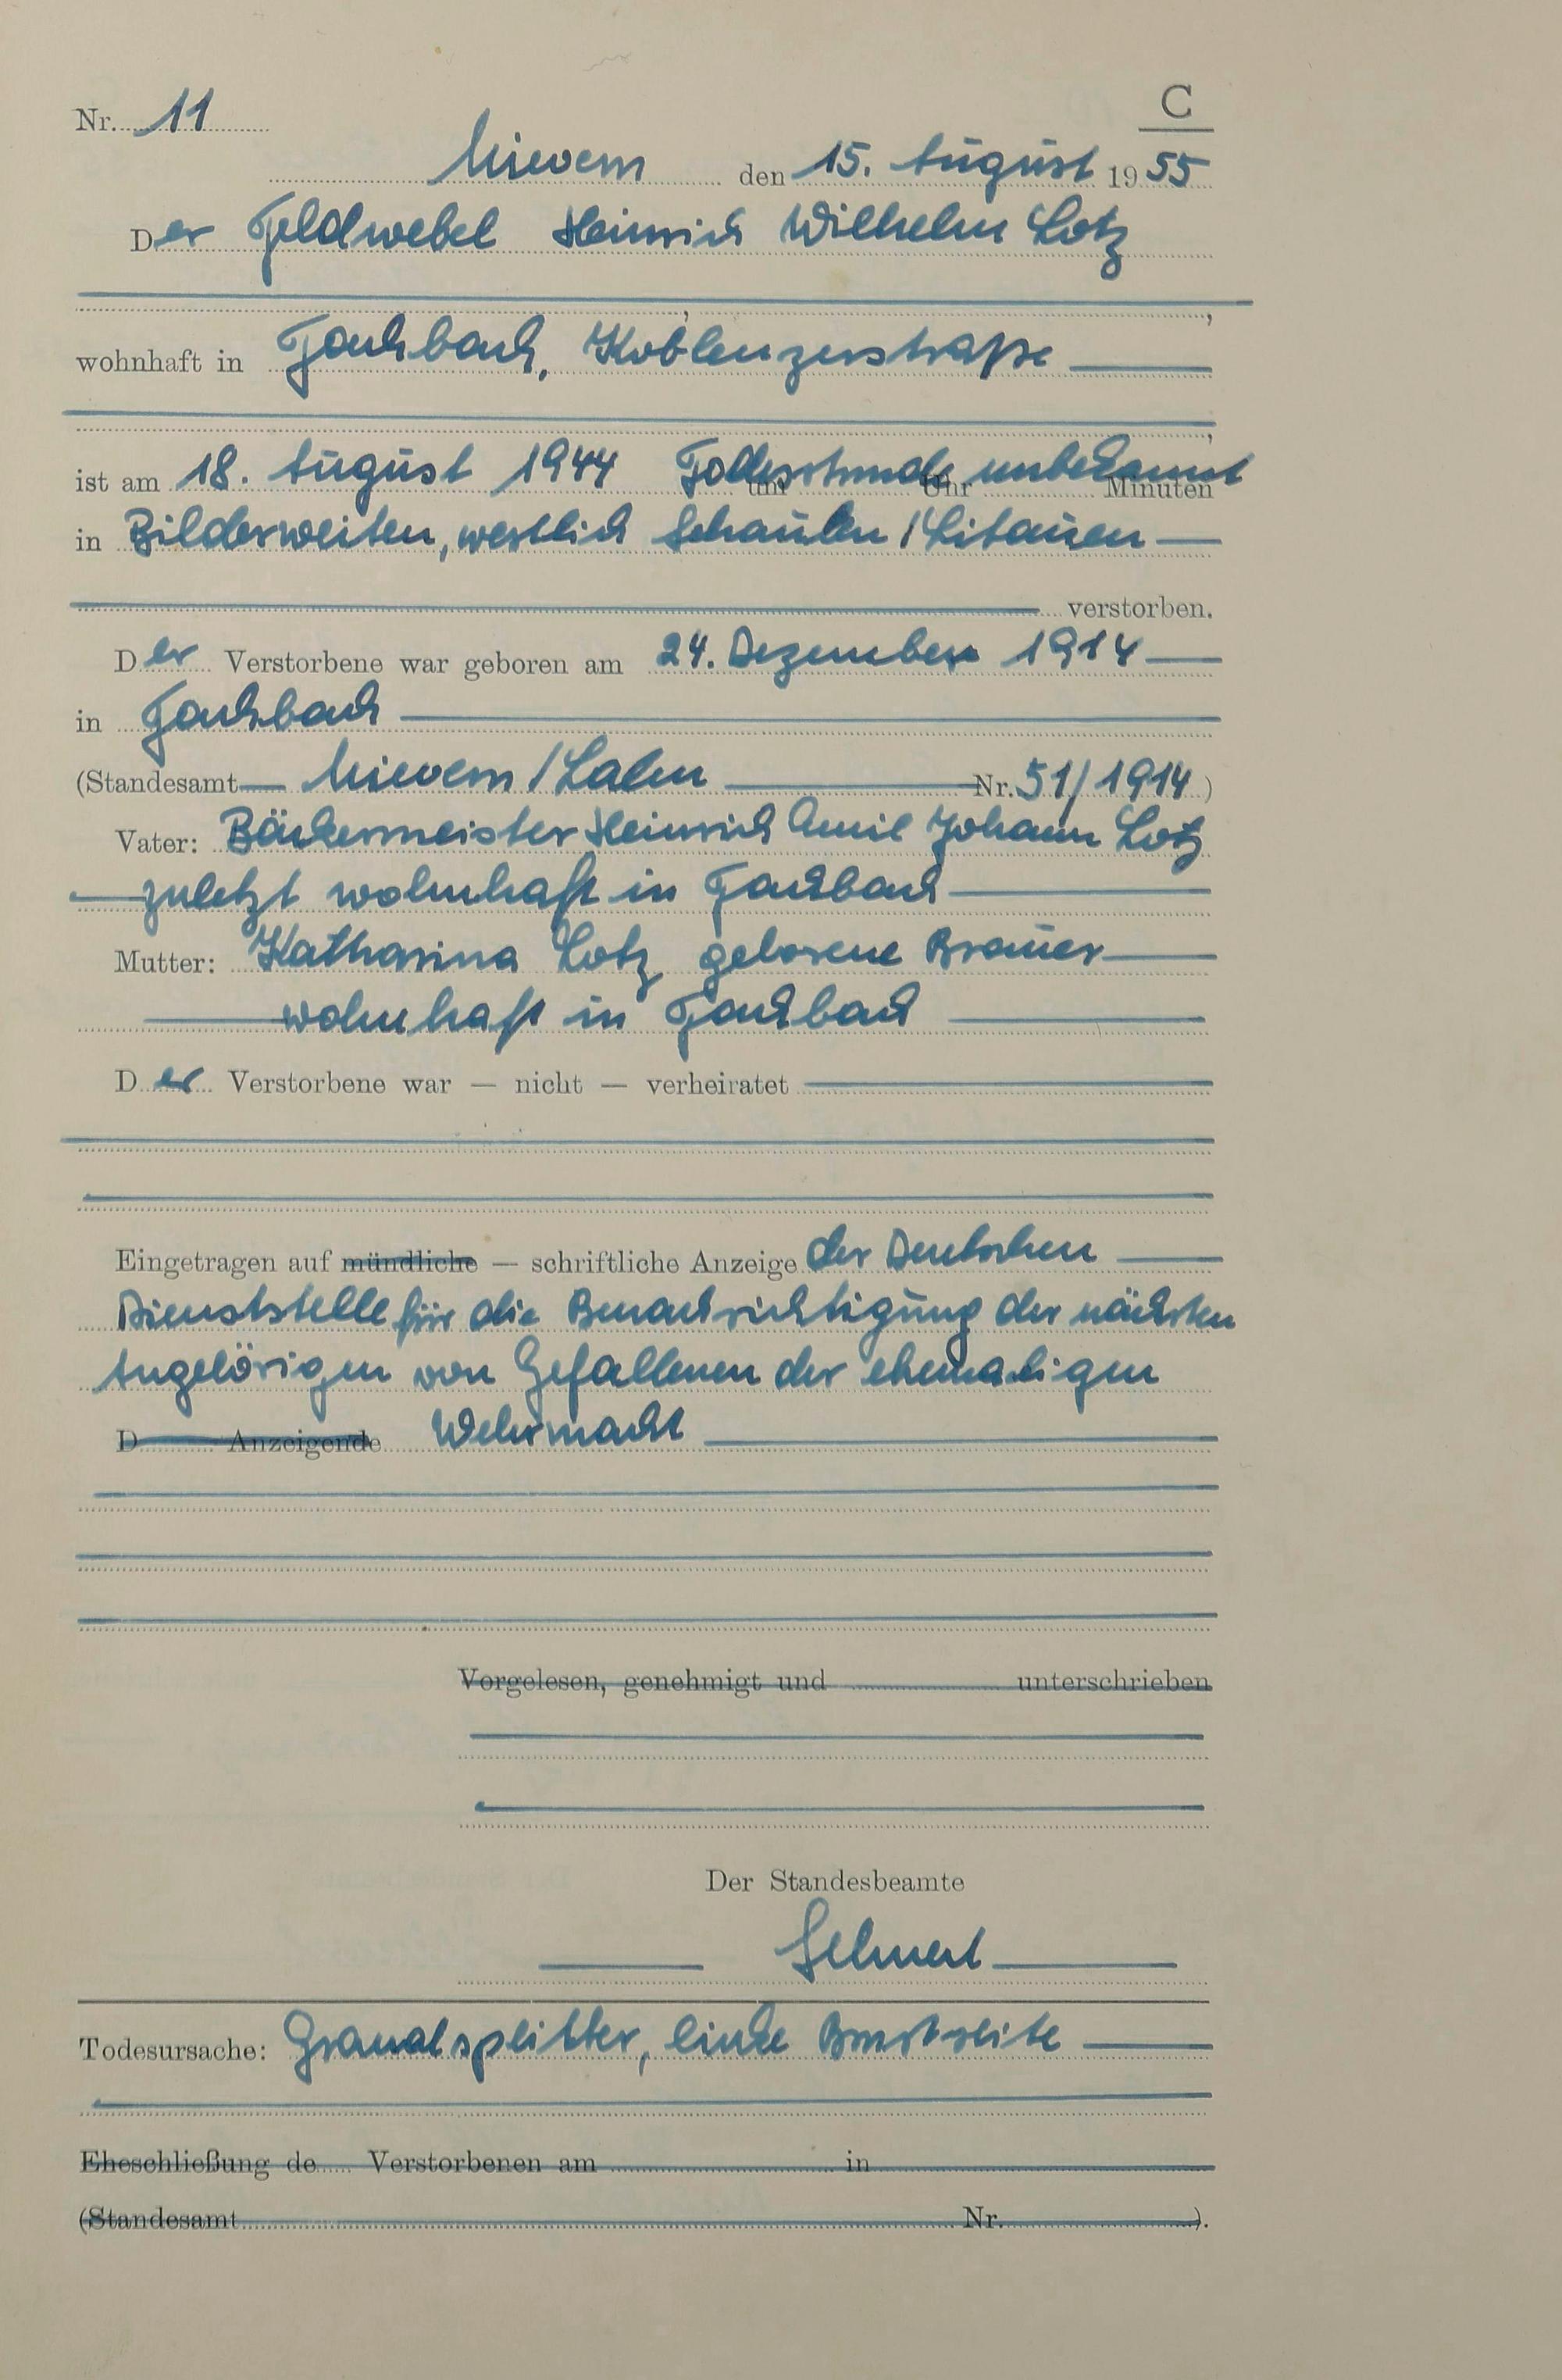 C
Nr. 11
Mievern den 15. August 1955
Der Feldwebel Heinrich Wilhelm Lotz
wohnhaft in Fachbach, Koblenzerstraße
ist am 18. August 1944 Todesstunde unbekannt um Uhr Minuten
in Bilderweiten, westlich Schaulen / Litauen
verstorben.
Der Verstorbene war geboren am 24. Dezember 1914
in Fachbach
(Standesamt Mievern / Lahn Nr. 51/1914)
Vater: Bäckermeister Heinrich Emil Johann Lotz
zuletzt wohnhaft in Fachbach
Mutter: Katharina Lotz geborene Brauer
wohnhaft in Fachbach
Der Verstorbene war — nicht — verheiratet
Eingetragen auf mündliche — schriftliche Anzeige der Deutschen
Dienststelle für die Benachrichtigung der nächsten
Angehörigen von Gefallenen der ehemaligen
D Anzeigende Wehrmacht
Vorgelesen, genehmigt und unterschrieben
Der Standesbeamte
Todesursache: Granatsplitter, linke Brustseite
Eheschließung de Verstorbenen am in
(Standesamt Nr. ).